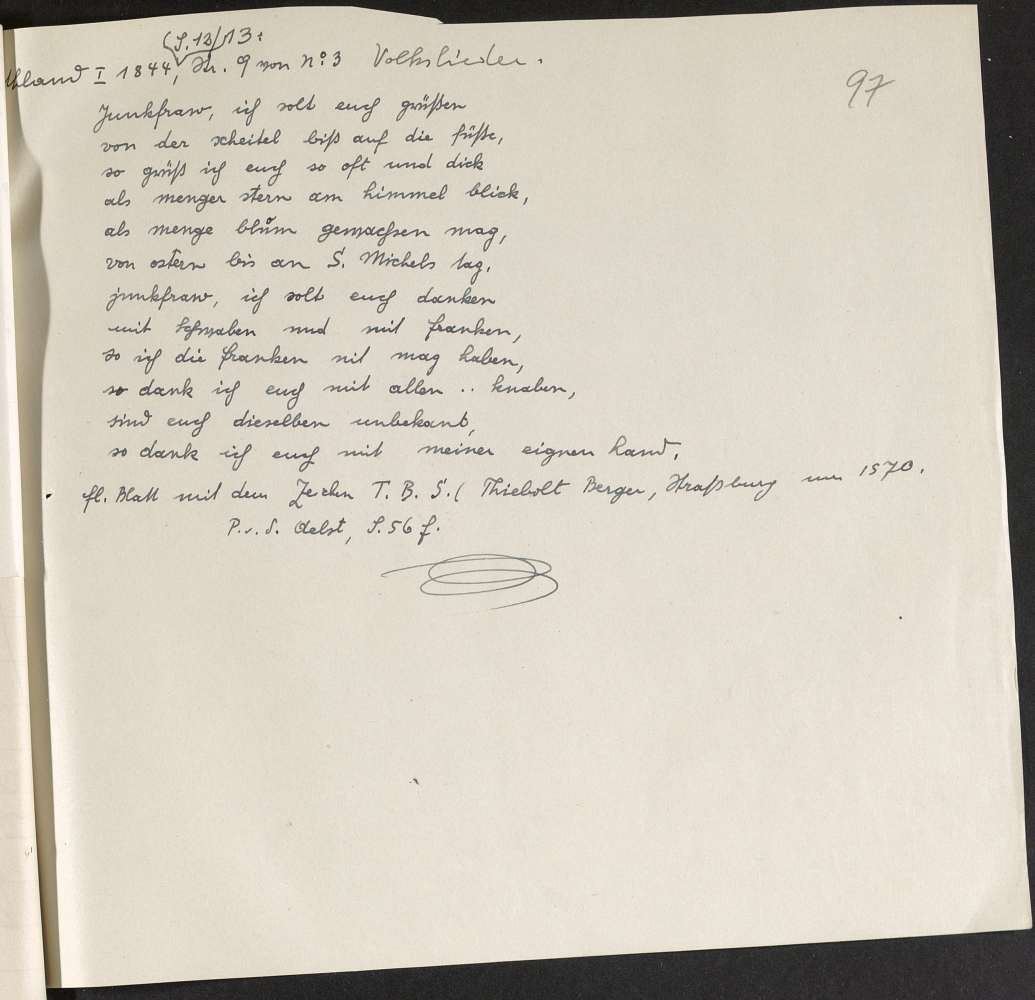 (S. 12/13:
Uhland I 1844, Str. 9 von No. 3 Volkslieder.
97
Junkfraw, ich solt euch grüßen
von der scheitel biß auf die füße,
so grüß ich euch so oft und dick
als menger stern am himmel blick,
als menge blům gewachsen mag,
von ostern bis an S. Michels tag.
junkfraw, ich solt euch danken
mit schwaben und mit franken,
so ich die franken nit mag haben,
so dank ich euch mit allen .. knaben,
sind euch dieselben unbekant,
so dank ich euch mit meiner eignen hand.
fl. Blatt mit dem Zeichn T. B. S. ( Thiebolt Berger, Straßburg um 1570.
P. v. d. Aelst, S. 56 f.